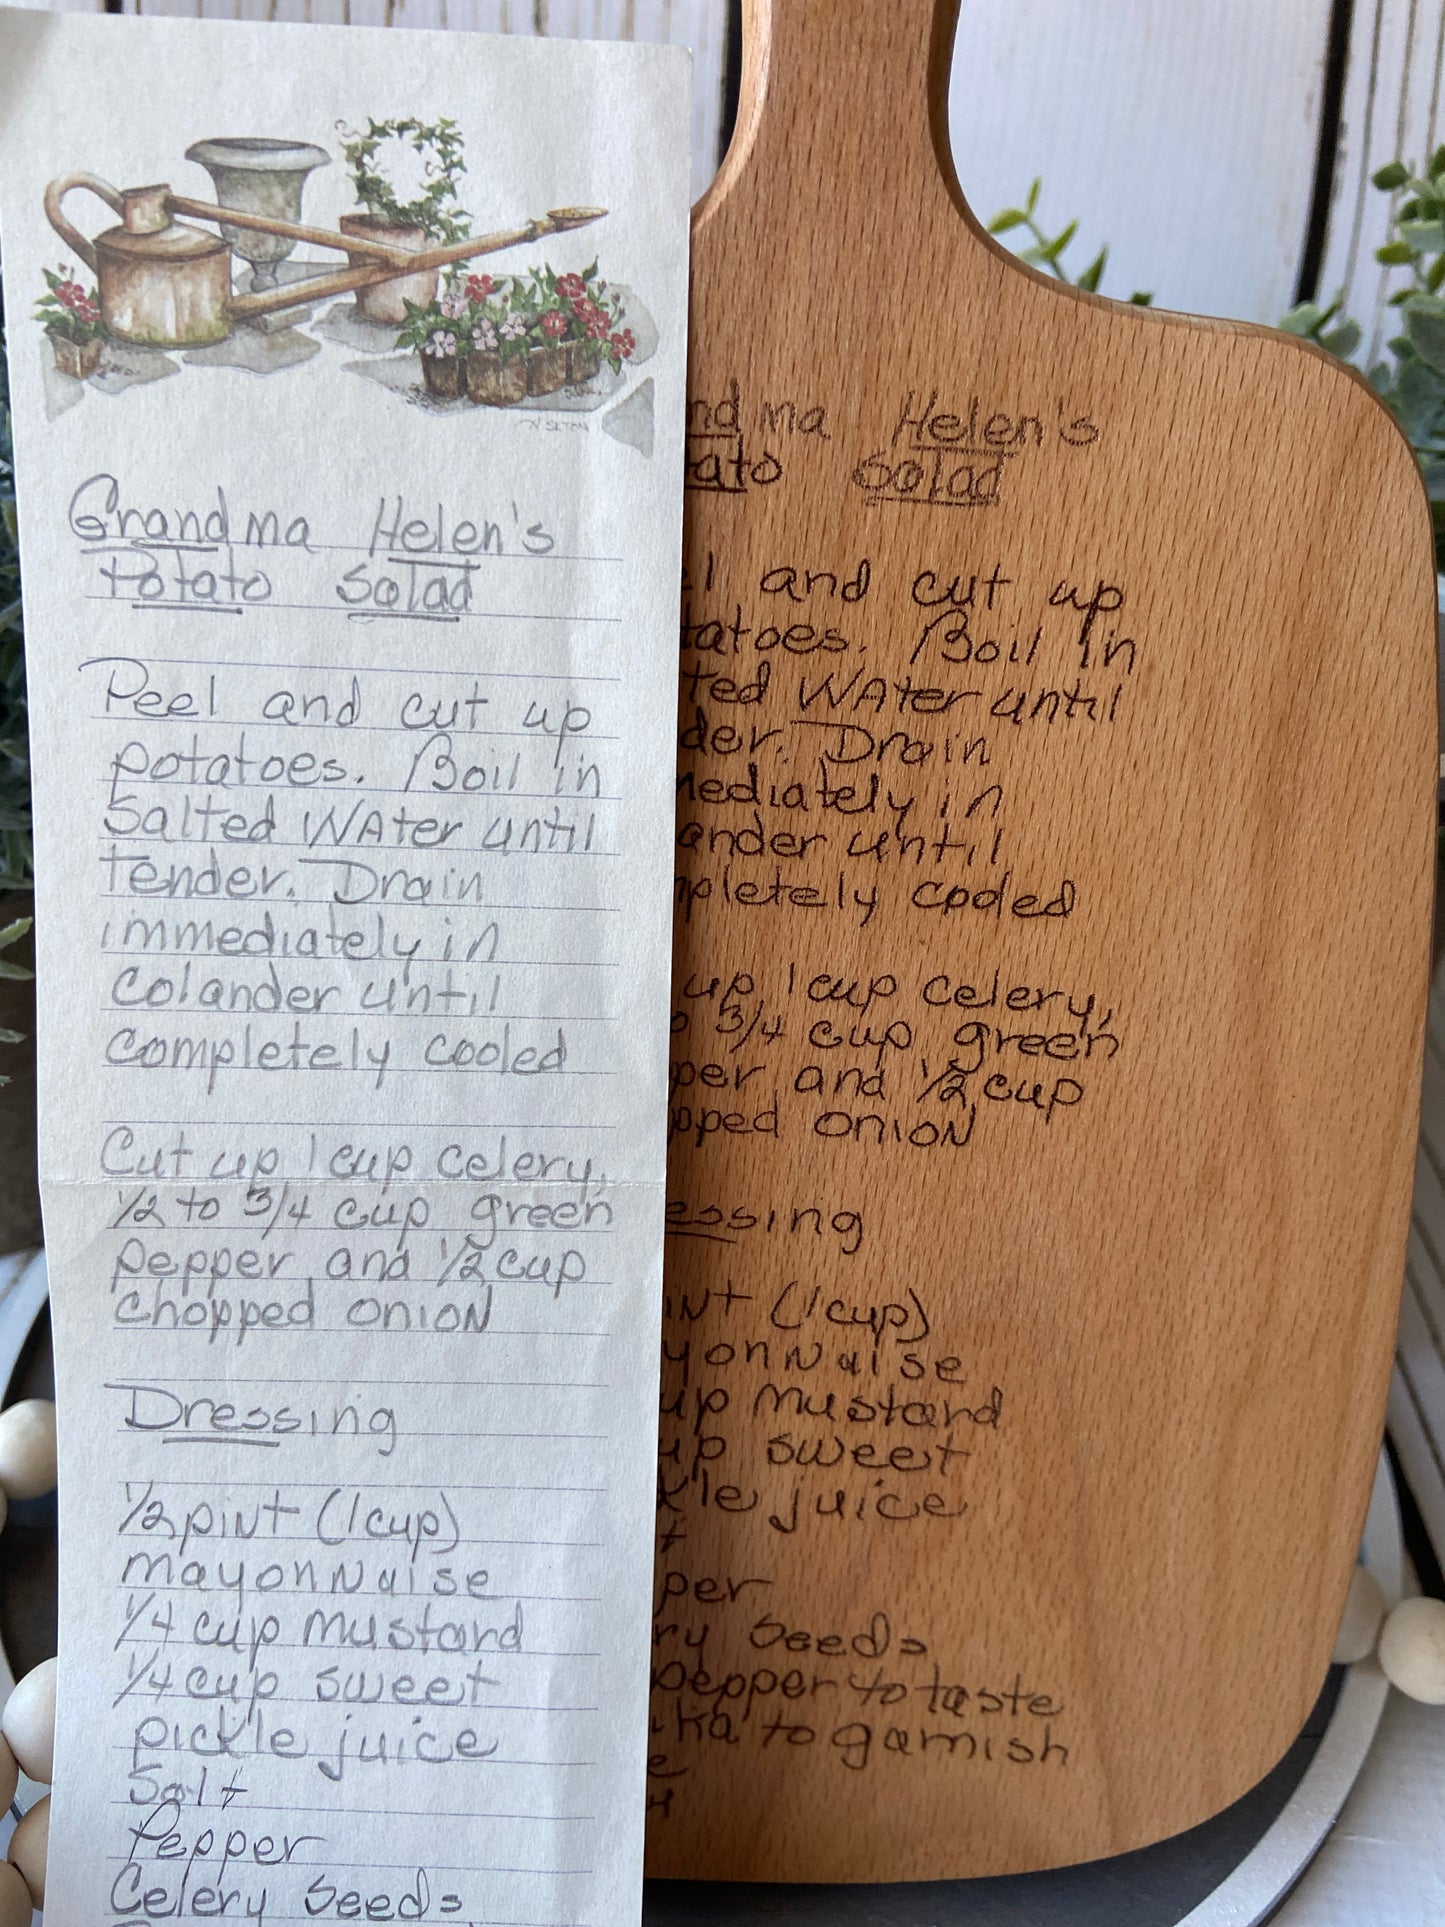 Grandma Helen's
Potato Salad
Peel and cut up
potatoes. Boil in
Salted WAter until
tender. Drain
immediately in
colander until
completely cooled
Cut up 1 cup celery,
1/2 to 3/4 cup green
pepper and 1/2 cup
chopped onion
Dressing
1/2 pint (1 cup)
mayonnaise
1/4 cup mustard
1/4 cup sweet
pickle juice
Salt
Pepper
Celery Seeds
ndma Helen's
tato Salad
l and cut up
tatoes. Boil in
ted WAter until
der. Drain
mediately in
ander until
mpletely cooled
up 1 cup celery,
o 3/4 cup green
per and 1/2 cup
pped onion
essing
int (1 cup)
yonnaise
up mustard
up sweet
kle juice
t
per
ry Seeds
pepper to taste
ika to garnish
e